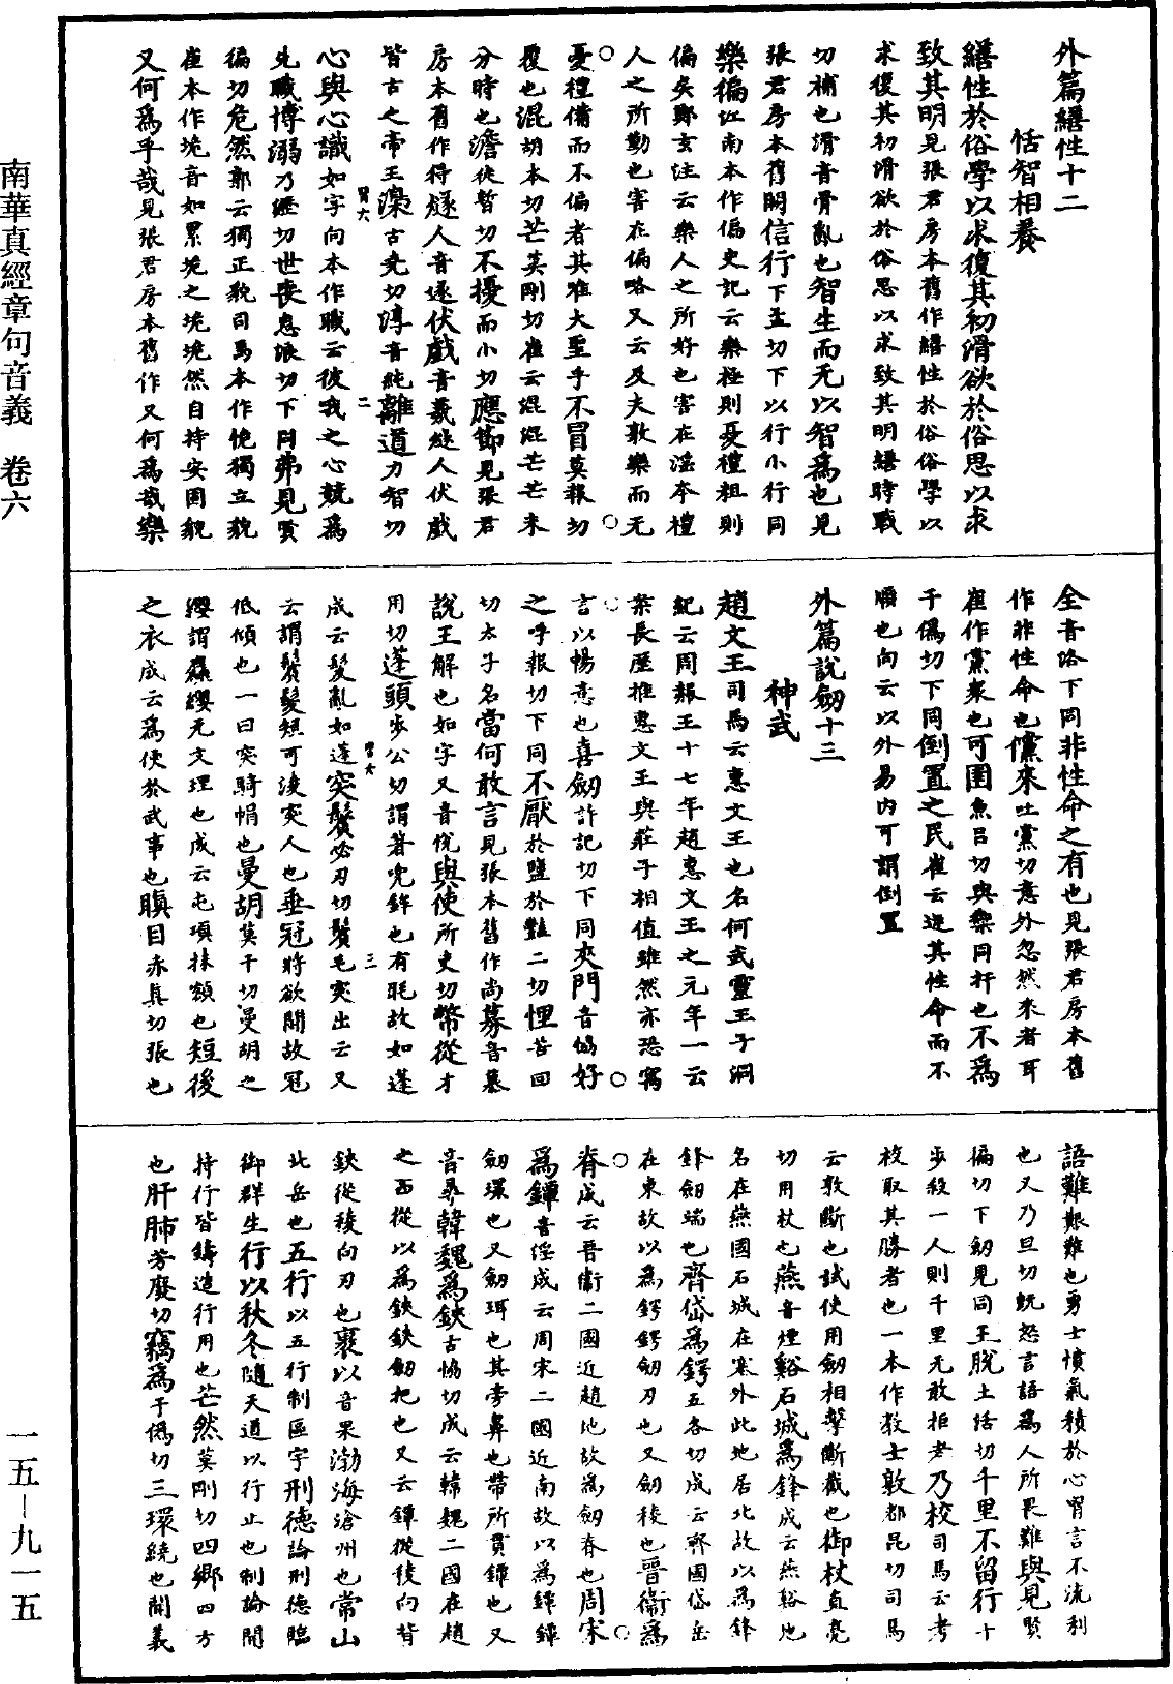 外篇繕性十二
恬智相養
繕性於俗學以求復其初滑欲於俗思以求
致其明見張君房本舊作繕性於俗俗學以
求復其初滑欲於俗思以求致其明繕時戰
切補也滑音骨亂也智生而无以智爲也見
張君房本舊闕信行下孟切下以行小行同
樂徧江南本作偏史記云樂極則憂禮粗則
偏矣鄭玄注云樂人之所好也害在淫夲禮
人之所勤也害在偏略又云及夫敦樂而无
憂禮備而不偏者其唯大聖乎不冒莫報切
覆也混胡本切芒莫剛切崔云混混芒芒未
分時也澹徒暫切不擾而小切應節見張君
房本舊作得燧人音遂伏戲音羲燧人伏戲
皆古之帝王澆古堯切淳音純離道力智切
心與心識如字向本作職云彼我之心競爲
先職博溺乃歷切世喪息浪切下同弗見賢
徧切危然郭云獨正貌司馬本作恑獨立貌
崔本作垝音如累垝之垝垝然自持安固貌
又何爲乎哉見張君房本舊作又何爲哉樂
全音洛下同非性命之有也見張君房本舊
作非性命也儻來吐黨切意外忽然來者耳
崔作黨衆也可圉魚呂切與禦同扞也不爲
于僞切下同倒置之民崔云逆其性命而不
順也向云以外易内可謂倒置
外篇說劒十三
神武
趙文王司馬云惠文王也名何武靈王子洞
紀云周赧王十七年趙惠文王之元年一云
案長歷推惠文王與莊子相值雖然亦恐寓
言以暢意也喜劒許記切下同夾門音協好
之呼報切下同不厭於鹽於豔二切悝苦回
切太子名當何敢言見張本舊作尚募音慕
說王解也如字又音悅與使所吏切幣從才
用切蓬頭步公切謂著兜鉾也有毦故如蓬
成云髮亂如蓬突鬢必刃切鬢毛突出云又
云謂鬢髮短可淩突人也垂冠將欲鬪故冠
低傾也一曰突騎帽也曼胡莫干切曼胡之
纓謂麤纓无文理也成云屯項抹額也短後
之衣成云爲便於武事也瞋目赤真切張也
語難艱難也勇士憤氣積於心胷言不流利
也又乃旦切旣怒言語爲人所畏難與見賢
徧切下劒見同王脫土活切千里不留行十
步殺一人則千里无敢拒者乃校司馬云考
校取其勝者也一本作教士敦都昆切司馬
云敦斷也試使用劒相擊斷截也御杖直亮
切用杖也燕音煙谿石城爲鋒成云燕谿地
名在燕國石城在塞外此地居北故以爲鋒
鋒劒端也齊岱爲鍔五各切成云齊國岱岳
在東故以爲鍔鍔劒刃也又劒稜也晉衞爲
脊成云晉衞二國近趙地故爲劒脊也周宋
爲鐔音淫成云周宋二國近南故以爲鐔鐔
劒環也又劒珥也其旁鼻也帶所貫鐔也又
音尋韓魏爲鋏古協切成云韓魏二國在趙
之西從以爲鋏鋏劒把也又云鐔從稜向背
鋏從稜向刃也裹以音果渤海滄州也常山
北岳也五行以五行制區宇刑德論刑德臨
御群生行以秋冬隨天道以行止也制論開
持行皆鑄造行用也芒然莫剛切四鄉四方
也肝肺芳廢切竊爲于僞切三環繞也聞義
南華真經章句音義　卷六
一五—九一五